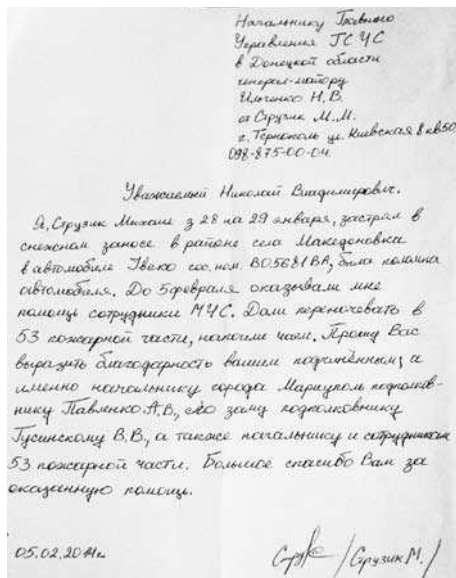 Начальнику Главного
Управления ГСЧС
в Донецкой области
генерал-майору
Ильченко Н.В.
от Струзик М.М.
г. Тернополь ул. Киевская 8 кв50
098-875-00-04.
Уважаемый Николай Владимирович.
Я, Струзик Михаил з 28 на 29 января, застрял в
снежном заносе в районе села Македоновка
в автомобиле Івеко гос. ном. ВО5681ВА, была поломка
автомобиля. До 5 февраля оказывали мне
помощь сотрудники МЧС. Дали переночевать в
53 пожарной части, напоили чаем. Прошу Вас
выразить благодарность вашим подчинённым, а
именно начальнику города Мариуполь подполков-
нику Павленко А.В., его заму подполковнику
Гусинскому В.В., а также начальнику и сотрудникам
53 пожарной части. Большое спасибо Вам за
оказанную помощь.
05.02.2014г. /Струзик М./